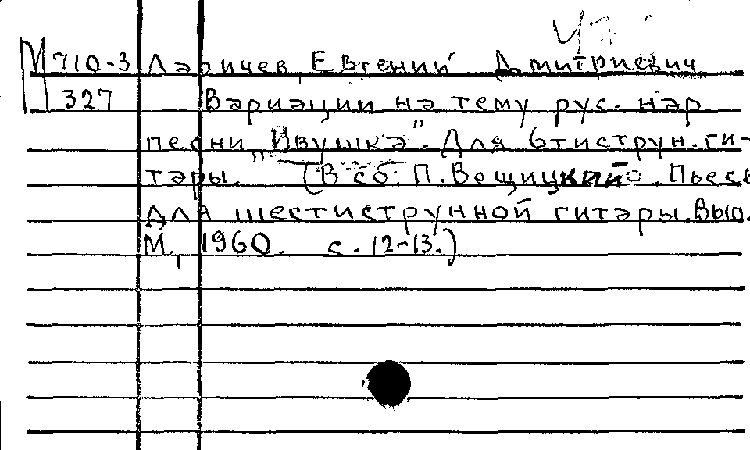 М 710-3 Ларичев, Евгений Дмитриевич
327 Вариации на тему рус. нар.
песни „Ивушка". Для 6тиструн. ги-
тары. (В сб: П. Вещицкий. Пьесы
для шестиструнной гитары. Вып.
М., 1960. с. 12-13.)